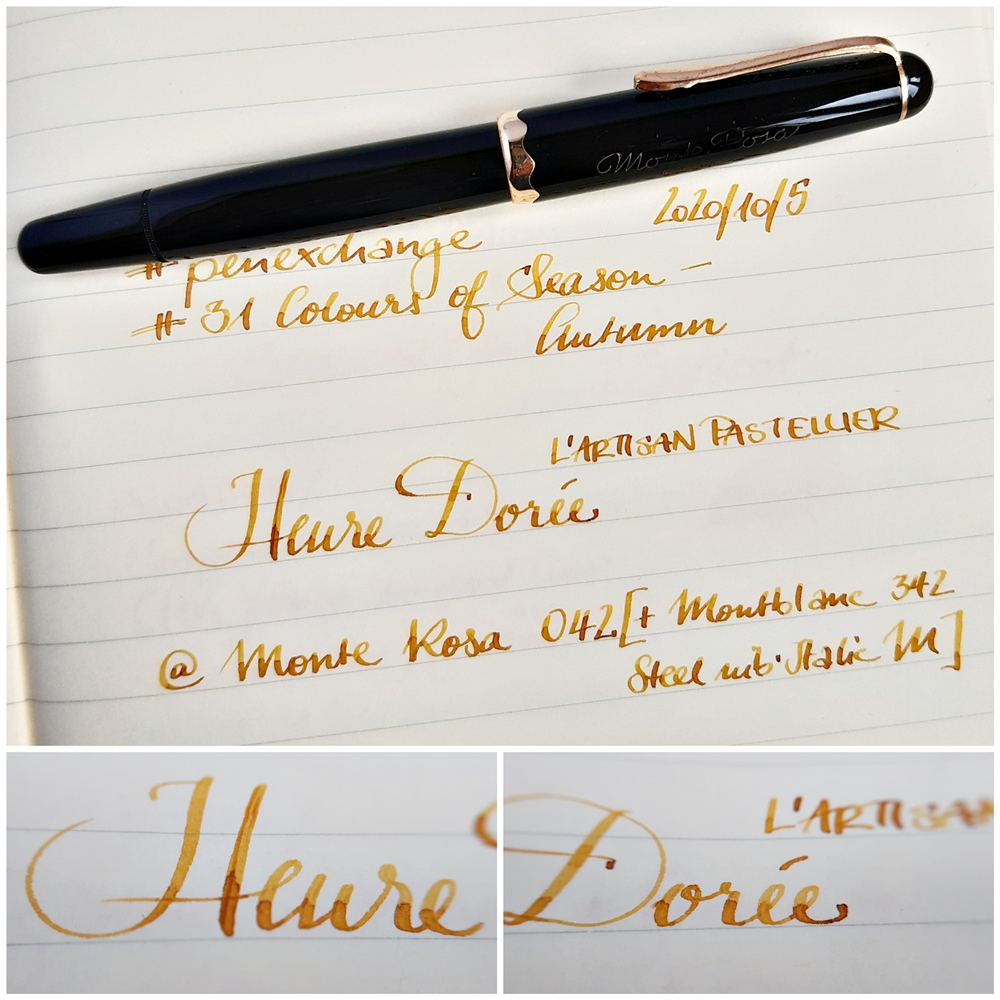 Monte Rosa
2020/10/5
# penexchange
# 31 Colours of Season –
Autumn
L'ARTISAN PASTELLIER
Heure Dorée
@ Monte Rosa 042 [+ Montblanc 342
Steel nib · Italic M]
Heure
L'ARTISAN
Dorée